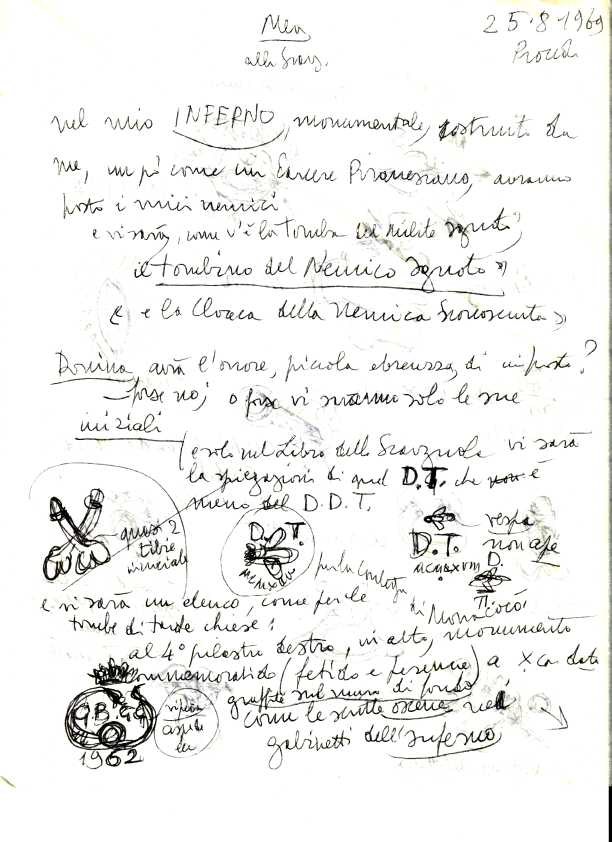 25·8·1969
alla Scarz.
nel mio INFERNO, monumentale, costruito da
me, un pò come un Carcere Piranesiano, avranno
posto i miei nemici
e vi sarà, come v'è la tomba del milite ignoto,
il tombino del Nemico Ignoto»
« e la Cloaca della Nemica Sconosciuta»
Domina avrà l'onore, piccola ebreuzza, di un posto?
forse no; o forse vi saranno solo le sue
iniziali
e solo nel Libro della Scarzuola vi sarà
la spiegazione di quel D.T. che non è
meno del D.D.T.
quasi 2
D. T.
vespa
non ape
D.T.
D.
T.
e vi sarà un elenco, come per le
tombe di tante chiese:
al 4° pilastro destro, in alto, monumento
commemorativo (fetido e perenne) a X ca data
graffite sul muro di fondo
come le scritte oscene nei
gabinetti dell'inferno
G.B.GG
vipera
aspide
1962